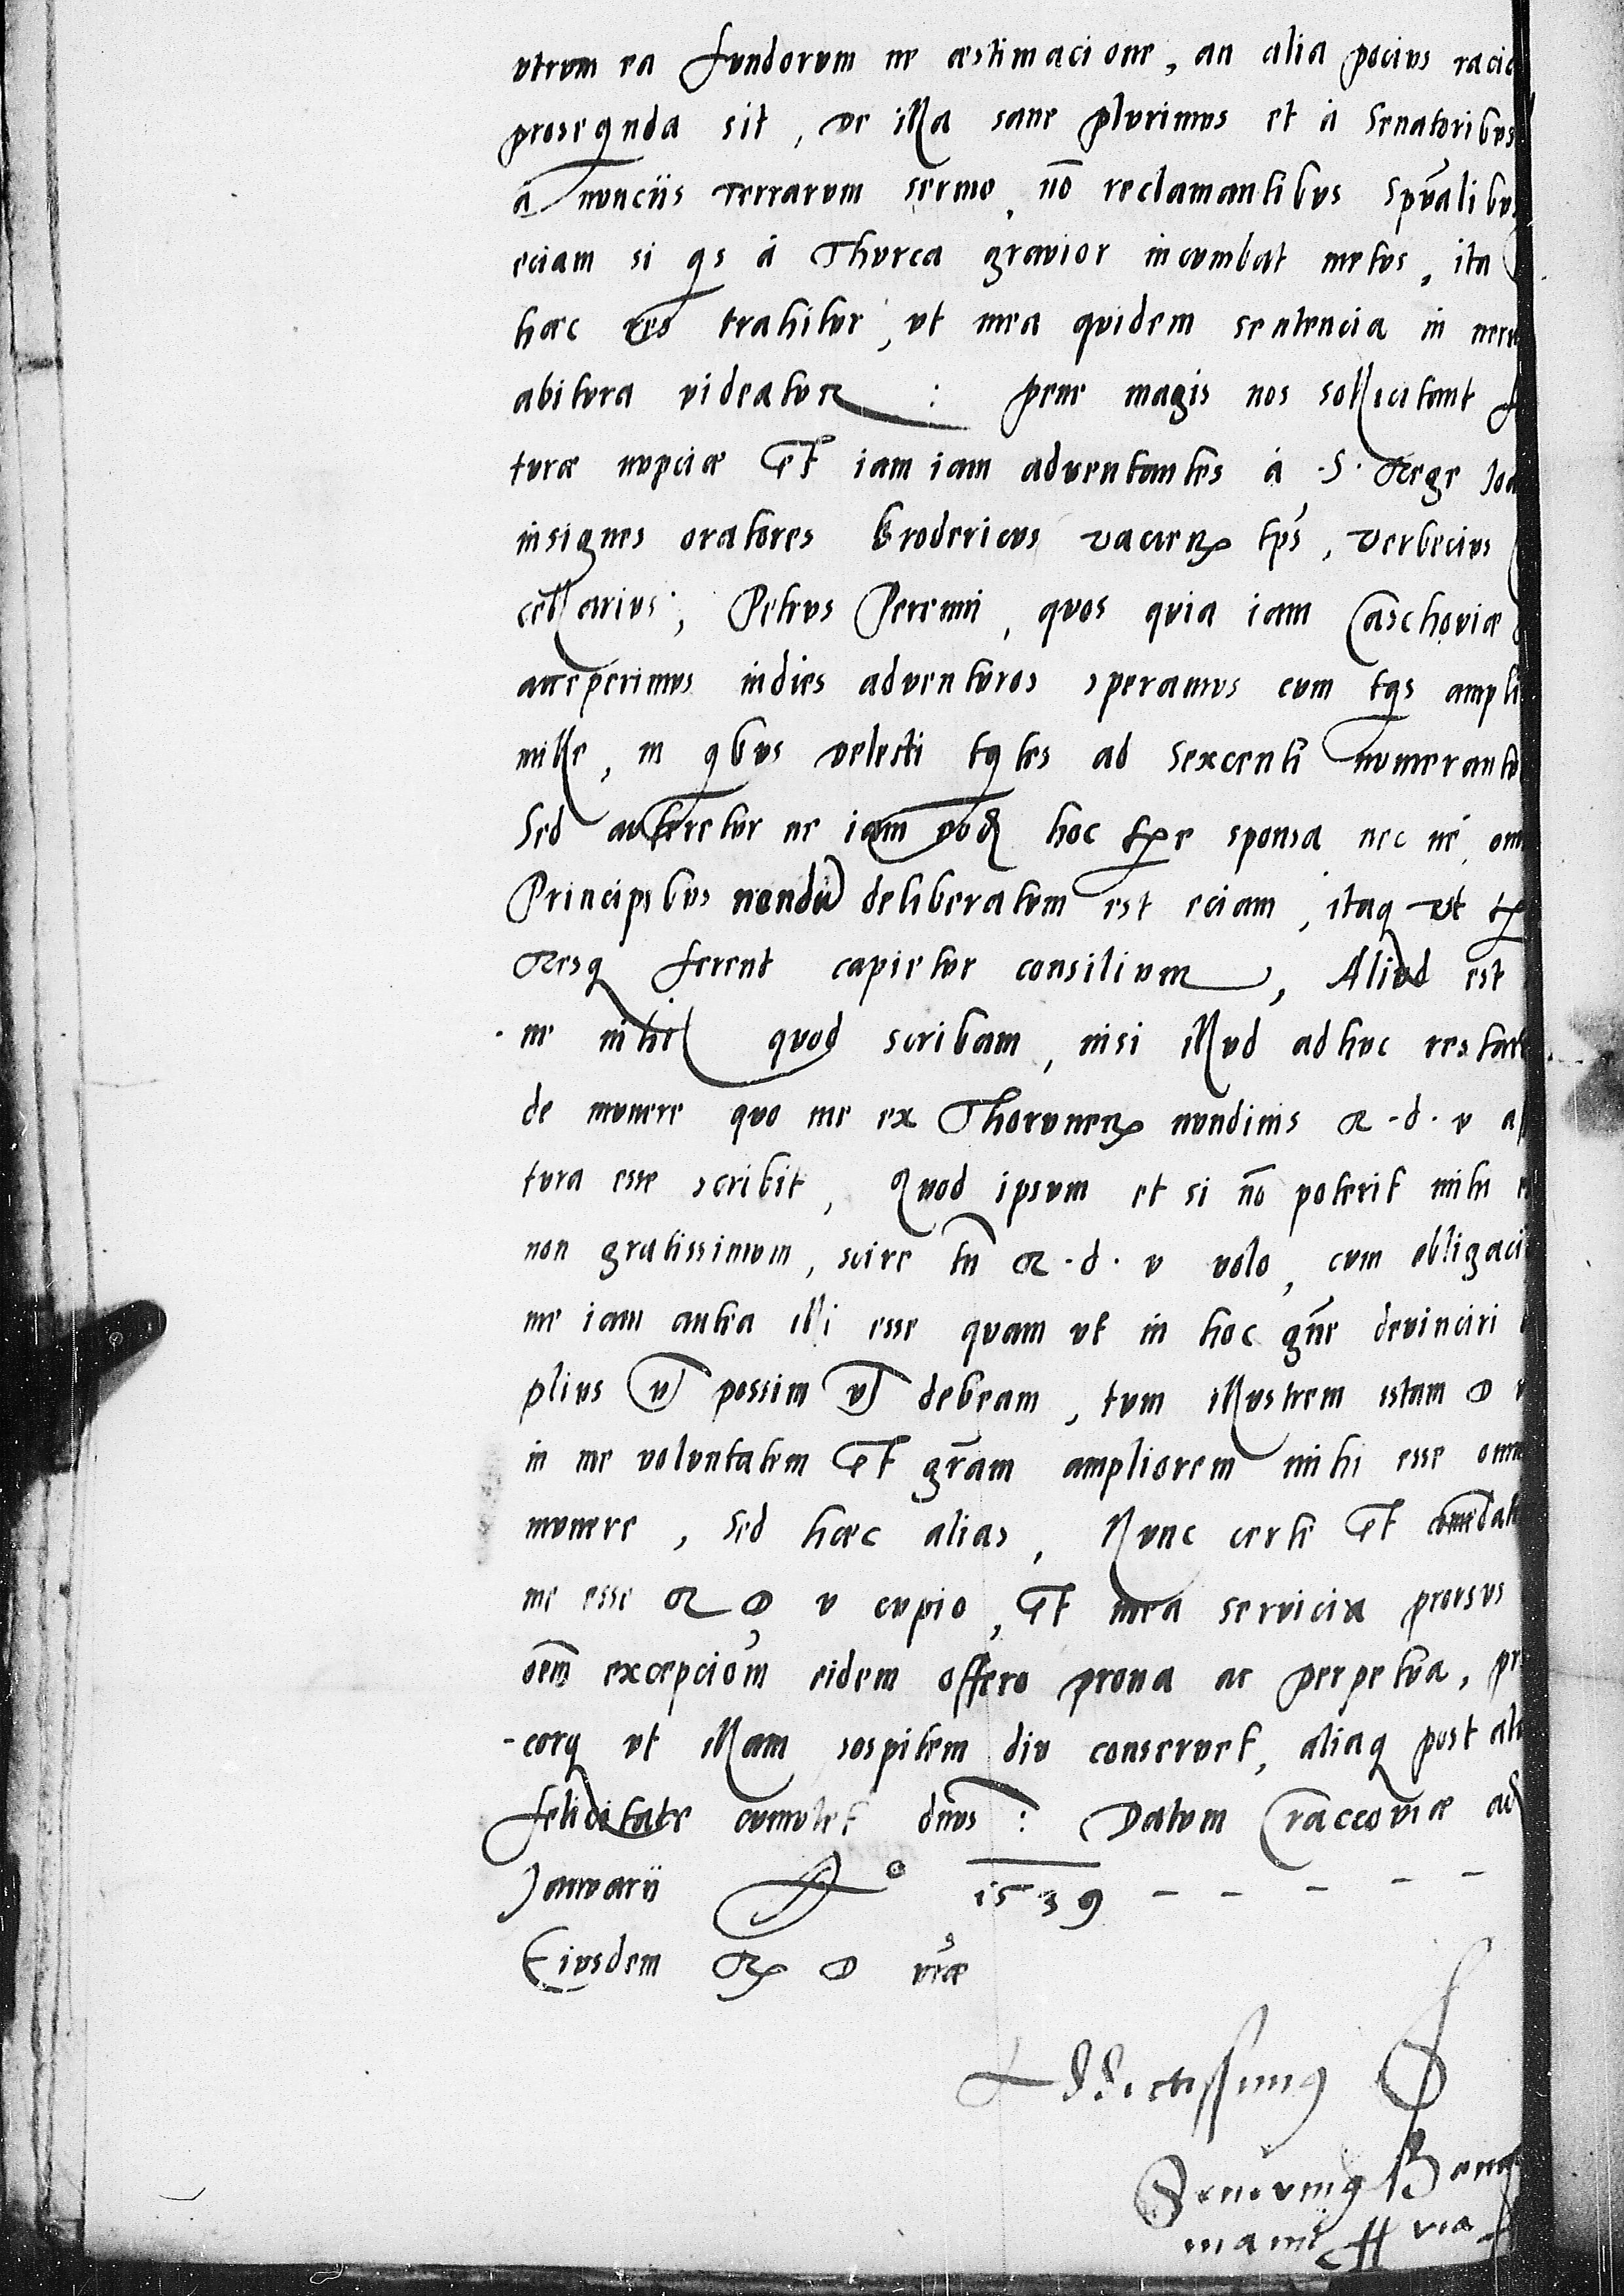 vtrum ea fundorum ne æstimacione, an alia pocius racio
prosequnda sit, de illa sane plurimus et á Senatoribus
a nunciis terrarum sermo, nō reclamantibus Spūalibus
eciam si qs á Thurca gravior incumbat metus, ita
hæc res trahitur, ut mea quidem sentencia in
abitura videatur : pene magis nos sollicitant f
turæ nupciæ et iam iam adventantes á .S. Rege Joa
insignes oratores Brodericus vacien tps, Verbecius
cellarius, Petrus Peremi, quos quia iam Caschoviæ
accepimus indies adventuros speramus cum eqs ampli
mille, in qbus velesti eqtes ad Sexcenti numerantu
Sed an feretur ne iam voq hoc tpe sponsa nec ne,
Principibus nondū deliberatum est eciam, itaq ut
Resq ferent capietur consilium, Aliud est
ne nihil quod scribam, nisi illud adhuc restat
de munere quo me ex Thorunen nundinis R. d. v
tura esse scribit, Quod ipsum et si nō poterit mihi
non gratissimum, scire tn R. d. v volo, cum obligaci
me iam antea illi esse quam ut in hoc gne devinciri
plius vl possim vl debeam, tum illustrem istam D
in me voluntatem et grām ampliorem mihi esse
munere, Sed hæc alias, Nunc certe et comēdat
me esse R D v cupio, et mea servicia prorsus
oem excepciom eidem offero prona ac perpetua, pre
-corq ut illam sospitem diu conservet, aliaq post
felicitate cumulet dnus : Datum Craccoviæ
Januarii Aº 1539 - - - - -
Eiusdem R D vræ
Addictissimus S
Severinus Bon
manu